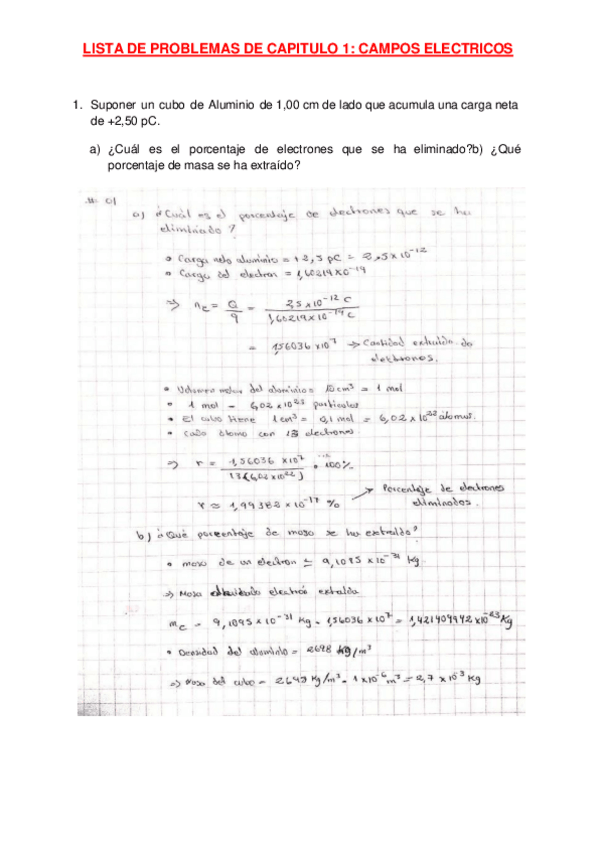 LISTA DE PROBLEMAS DE CAPITULO 1: CAMPOS ELECTRICOS
1. Suponer un cubo de Aluminio de 1,00 cm de lado que acumula una carga neta
de +2,50 pC.
a) ¿Cuál es el porcentaje de electrones que se ha eliminado?b) ¿Qué
porcentaje de masa se ha extraído?
01
a) ¿Cuál es el porcentaje de electrones que se ha
eliminado?
• Carga neta aluminio = +2,5 pC = 2,5 x 10^-12
• Carga del electron = 1,60219x10^-19
⇒ n_e = Q/q = 2,5 x 10^-12 C / 1,60219 x 10^-19 C
= 1,56036 x 10^7 → Cantidad extraida de
electrones.
• Volumen molar del aluminio = 10 cm³ = 1 mol
• 1 mol = 6,02 x 10^23 particulas
• El cubo tiene 1 cm³ = 0,1 mol = 6,02 x 10^22 atomos.
• Cada átomo con 13 electrones
⇒ r = 1,56036 x 10^7 / 13(6,02 x 10^22) • 100%
r ≈ 1,99382 x 10^-17 % → Porcentaje de electrones
eliminados.
b) ¿Qué porcentaje de masa se ha extraído?
• masa de un electron ≈ 9,1095 x 10^-31 Kg
⇒ Masa electrón extraida
m_e = 9,1095 x 10^-31 Kg - 1,56036 x 10^7 = 1,421409942 x 10^-23 Kg
• Densidad del aluminio = 2698 Kg/m³
⇒ Masa del cubo = Kg/m³ - 1 x 10^-6 m³ = 2,7 x 10^-3 Kg